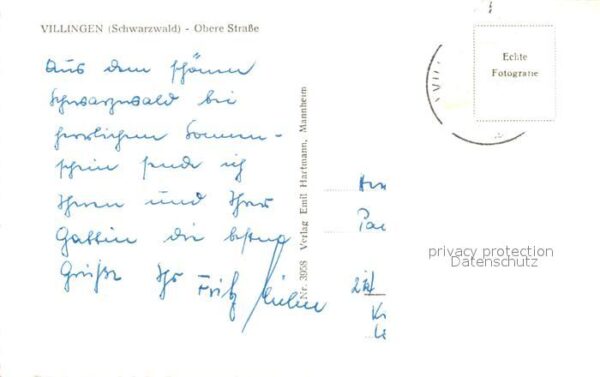 VILLINGEN (Schwarzwald) - Obere Straße
Aus dem schönen
Schwarzwald bei
herrlichem Sonnen-
schein sende ich
Ihnen und Ihrer
Gattin die besten
Grüße Ihr Fritz
Nr. 3958 Verlag Emil Hartmann, Mannheim
Echte
Fotografie
privacy protection
Datenschutz